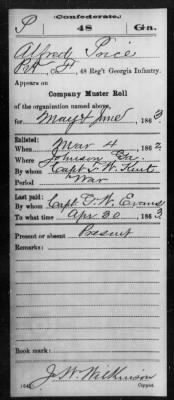 (Confederate.)
P 48 Ga.
Alfred Price
Pvt, 48 Reg't Georgia Infantry.
Appears on
Company Muster Roll
of the organization named above,
for May & June, 1863.
Enlisted:
When Mar 4, 1862
Where Johnson Ga.
By whom Capt T. W. Kent
Period War
Last paid:
By whom Capt. T. W. Evans
To what time Apr. 30, 1863
Present or absent Present
Remarks:
Book mark:
J. W. Wilkinson
Copyist.